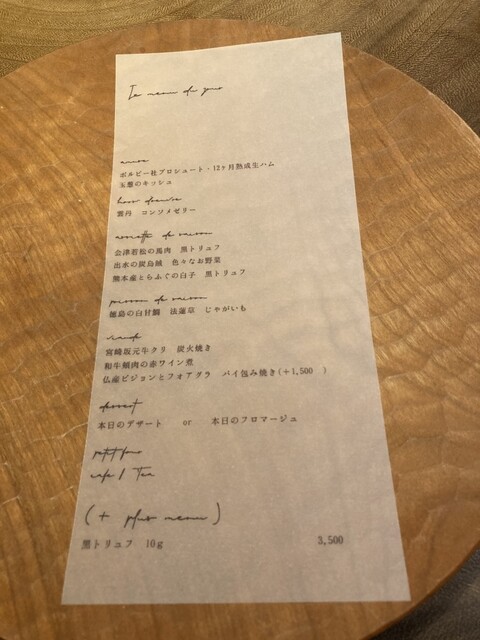 Le menu du jour
amuse
ボルピー社プロシュート・12ヶ月熟成生ハム
玉葱のキッシュ
hors d'œuvre
雲丹　コンソメゼリー
assiette de saison
会津若松の馬肉　黒トリュフ
出水の炭鳥賊　色々なお野菜
熊本産とらふぐの白子　黒トリュフ
poisson de saison
徳島の白甘鯛　法蓮草　じゃがいも
viande
宮崎坂元牛クリ　炭火焼き
和牛頬肉の赤ワイン煮
仏産ピジョンとフォアグラ　パイ包み焼き(＋1,500　)
dessert
本日のデザート　or　本日のフロマージュ
petit four
cafe / Tea
(+ plus menu)
黒トリュフ　10g　3,500